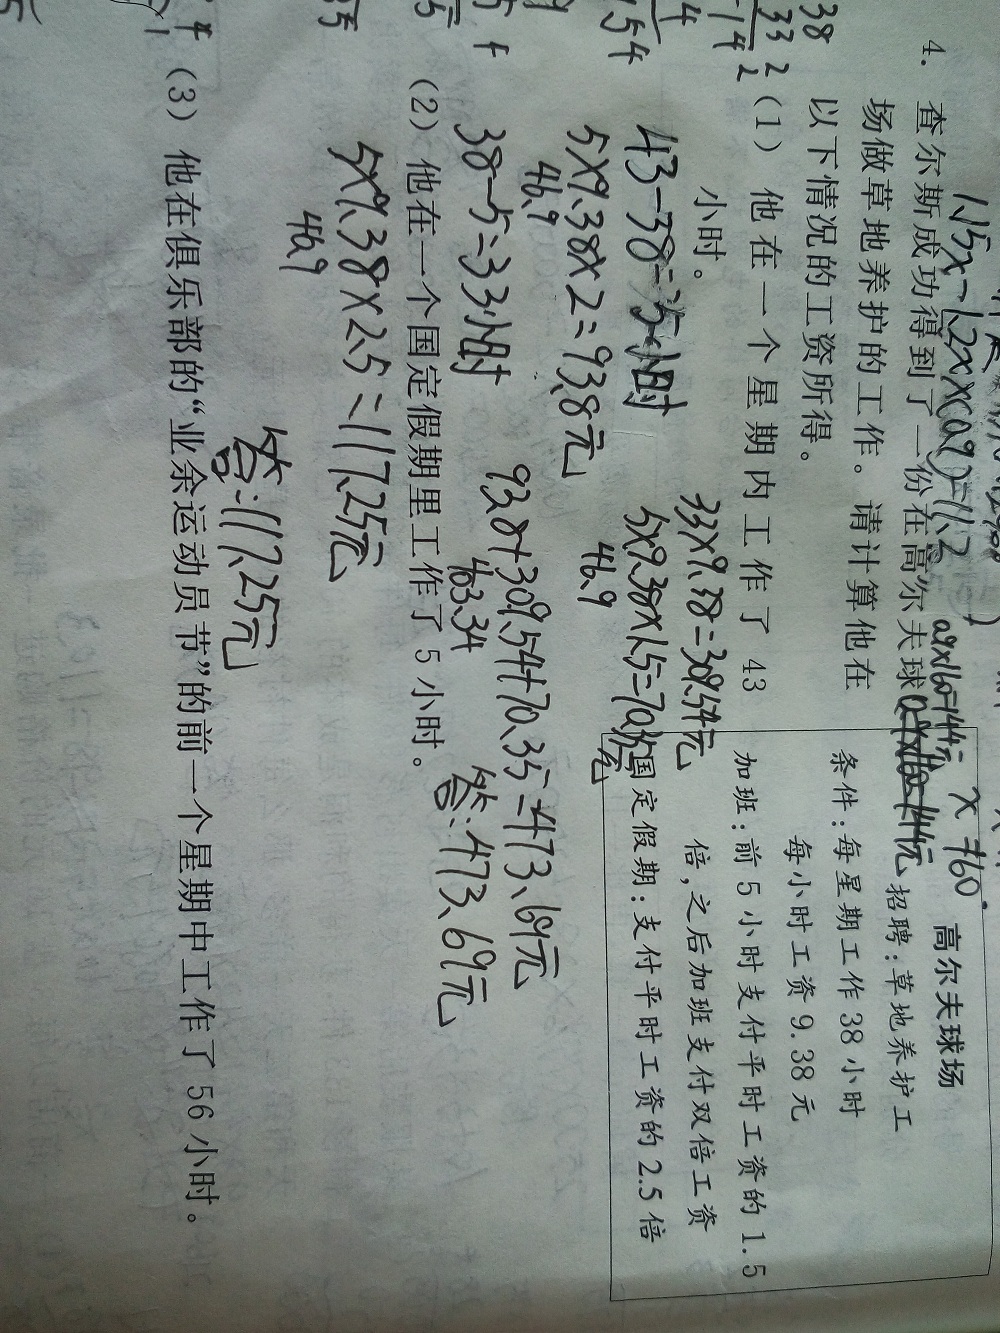 4. 查尔斯成功得到了一份在高尔夫球
场做草地养护的工作。请计算他在
以下情况的工资所得。
高尔夫球场
招聘:草地养护工
条件:每星期工作38小时
每小时工资9.38元
加班:前5小时支付平时工资的1.5
倍,之后加班支付双倍工资
国定假期:支付平时工资的2.5倍
(1) 他在一个星期内工作了43
小时。
43-38=5小时
33×9.38=309.54元
5×9.38×2=93.8元
46.9
5×9.38×1.5=70.35元
46.9
38-5=33小时
93.8+309.54+70.35=473.69元
403.34
答:473.69元
(2) 他在一个国定假期里工作了5小时。
5×9.38×2.5=117.25元
46.9
答:117.25元
(3) 他在俱乐部的“业余运动员节”的前一个星期中工作了56小时。